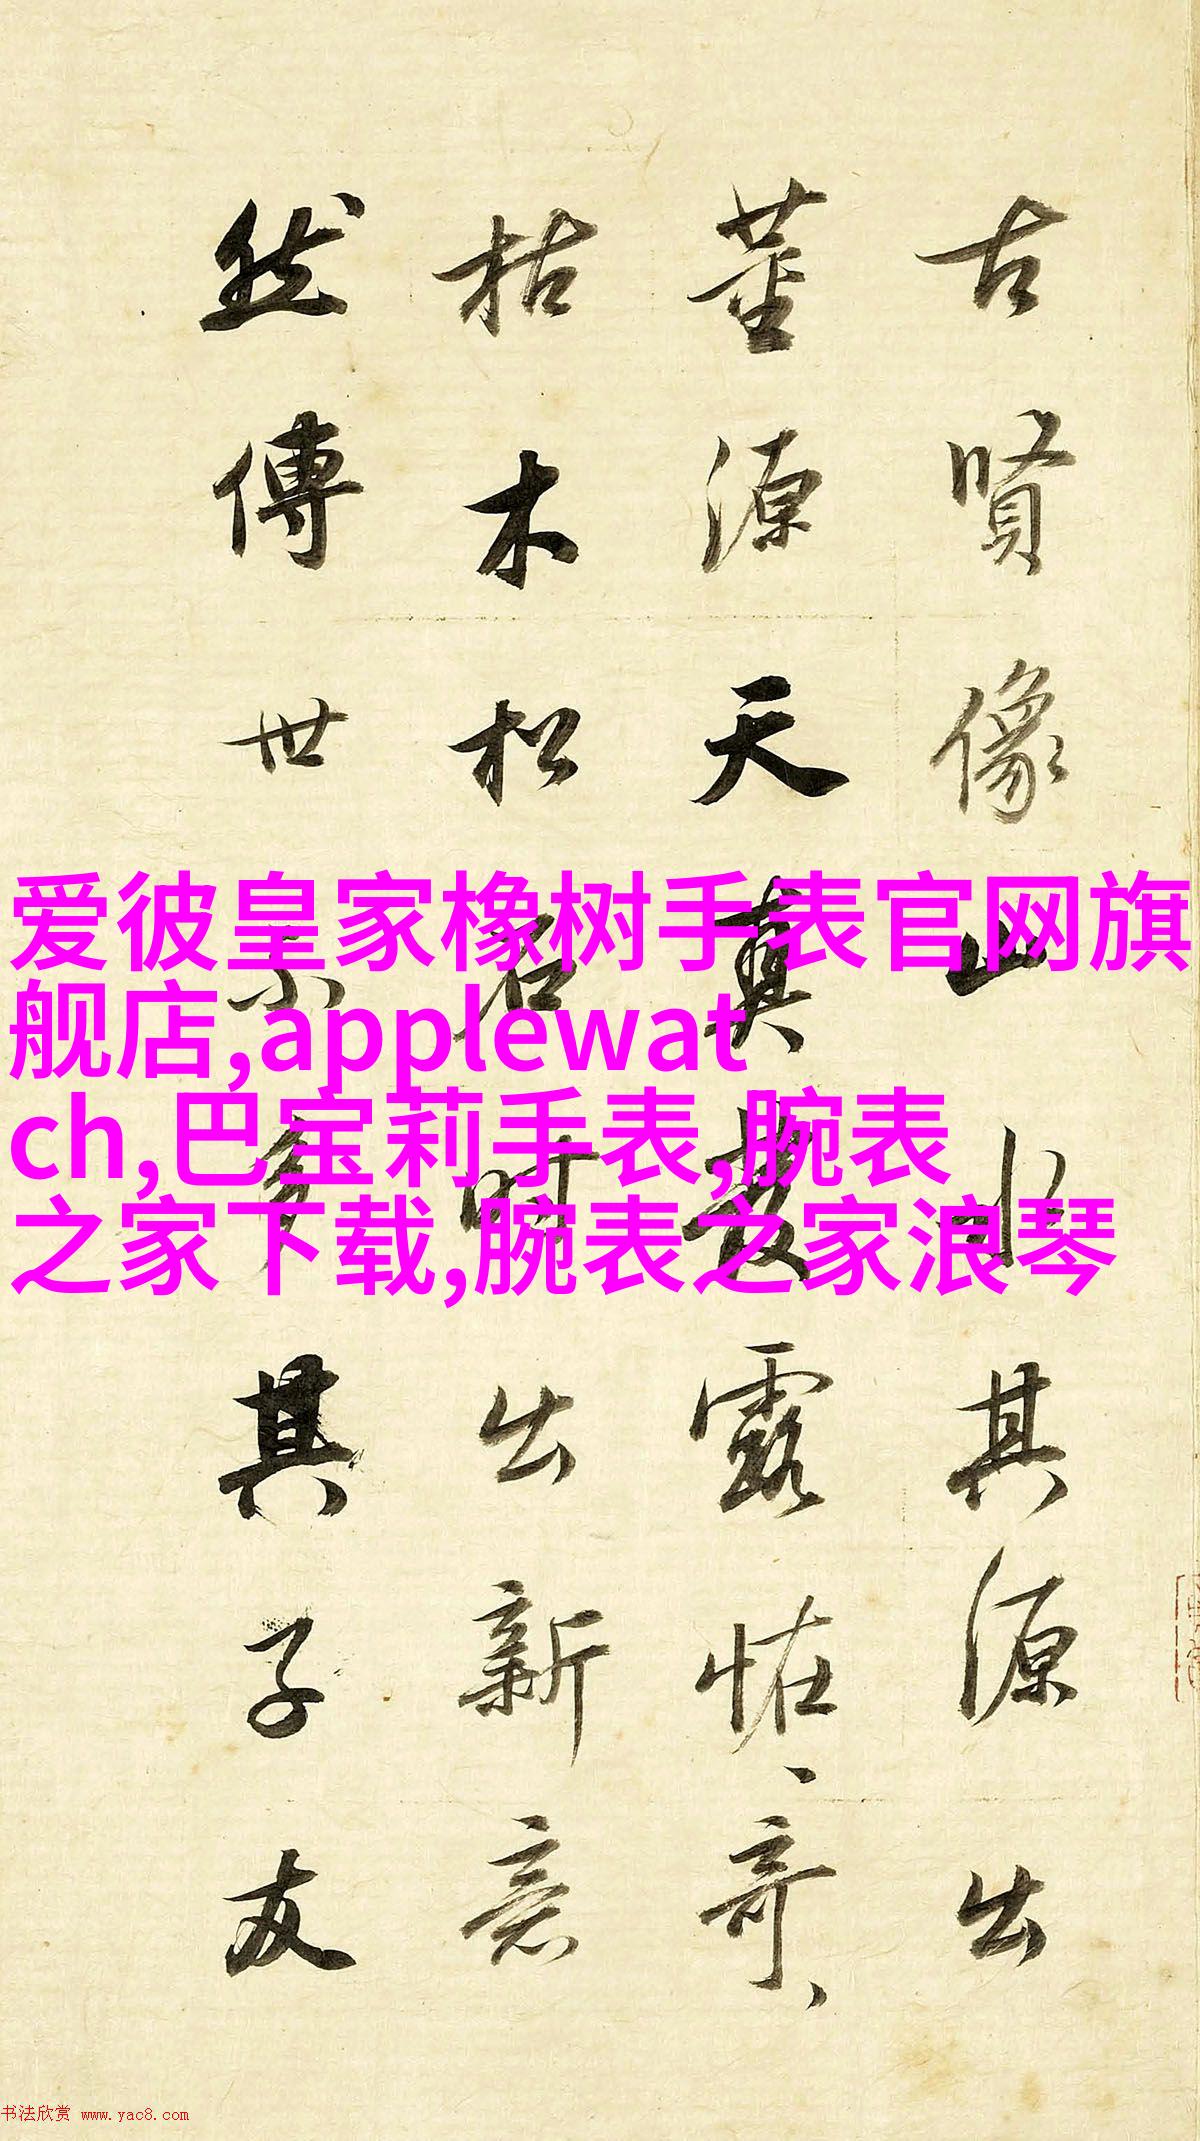 古賢像山水其源出
董源天真發露恠、奇、
枯木松石時出新意
然傳世不多其子友
爱彼皇家橡树手表官网旗
舰店,applewat
ch,巴宝莉手表,腕表
之家下载,腕表之家浪琴
书法欣赏 www.yac8.com